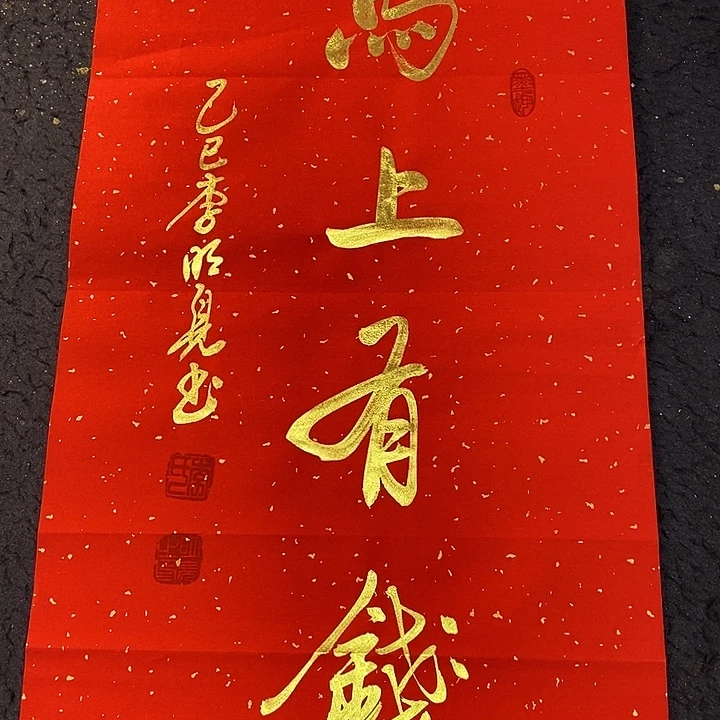 馬上有錢
乙巳李明見书